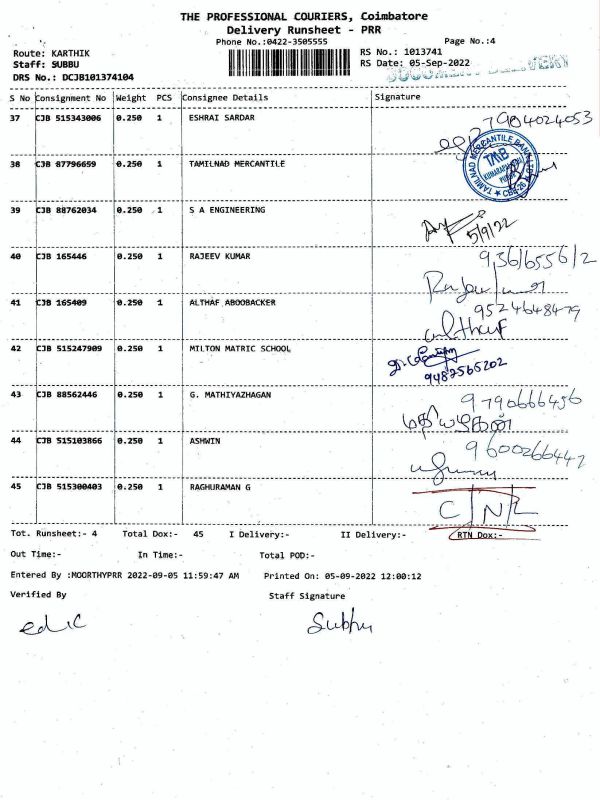 THE PROFESSIONAL COURIERS, Coimbatore
Delivery Runsheet - PRR
Phone No.:0422-3505555
Page No.:4
Route: KARTHIK
RS No.: 1013741
Staff: SUBBU
RS Date: 05-Sep-2022
DRS No.: DCJB101374104
DOCUMENT DELIVERY
S No Consignment No Weight PCS Consignee Details Signature
37 CJB 515343006 0.250 1 ESHRAI SARDAR
7904024053
38 CJB 87796659 0.250 1 TAMILNAD MERCANTILE
TAMILNAD MERCANTILE BANK
TMB
39 CJB 88762034 0.250 1 S A ENGINEERING
5/9/22
40 CJB 165446 0.250 1 RAJEEV KUMAR
9361655612
41 CJB 165409 0.250 1 ALTHAF ABOOBACKER
9524648479
althaf
42 CJB 515247909 0.250 1 MILTON MATRIC SCHOOL
9487565202
43 CJB 88562446 0.250 1 G. MATHIYAZHAGAN
9790666456
மதியழகன்
44 CJB 515103866 0.250 1 ASHWIN
9600266442
45 CJB 515300403 0.250 1 RAGHURAMAN G
C/N/L
Tot. Runsheet:- 4 Total Dox:- 45 I Delivery:- II Delivery:- RTN Dox:-
Out Time:- In Time:- Total POD:-
Entered By :MOORTHYPRR 2022-09-05 11:59:47 AM Printed On: 05-09-2022 12:00:12
Verified By Staff Signature
Subbu